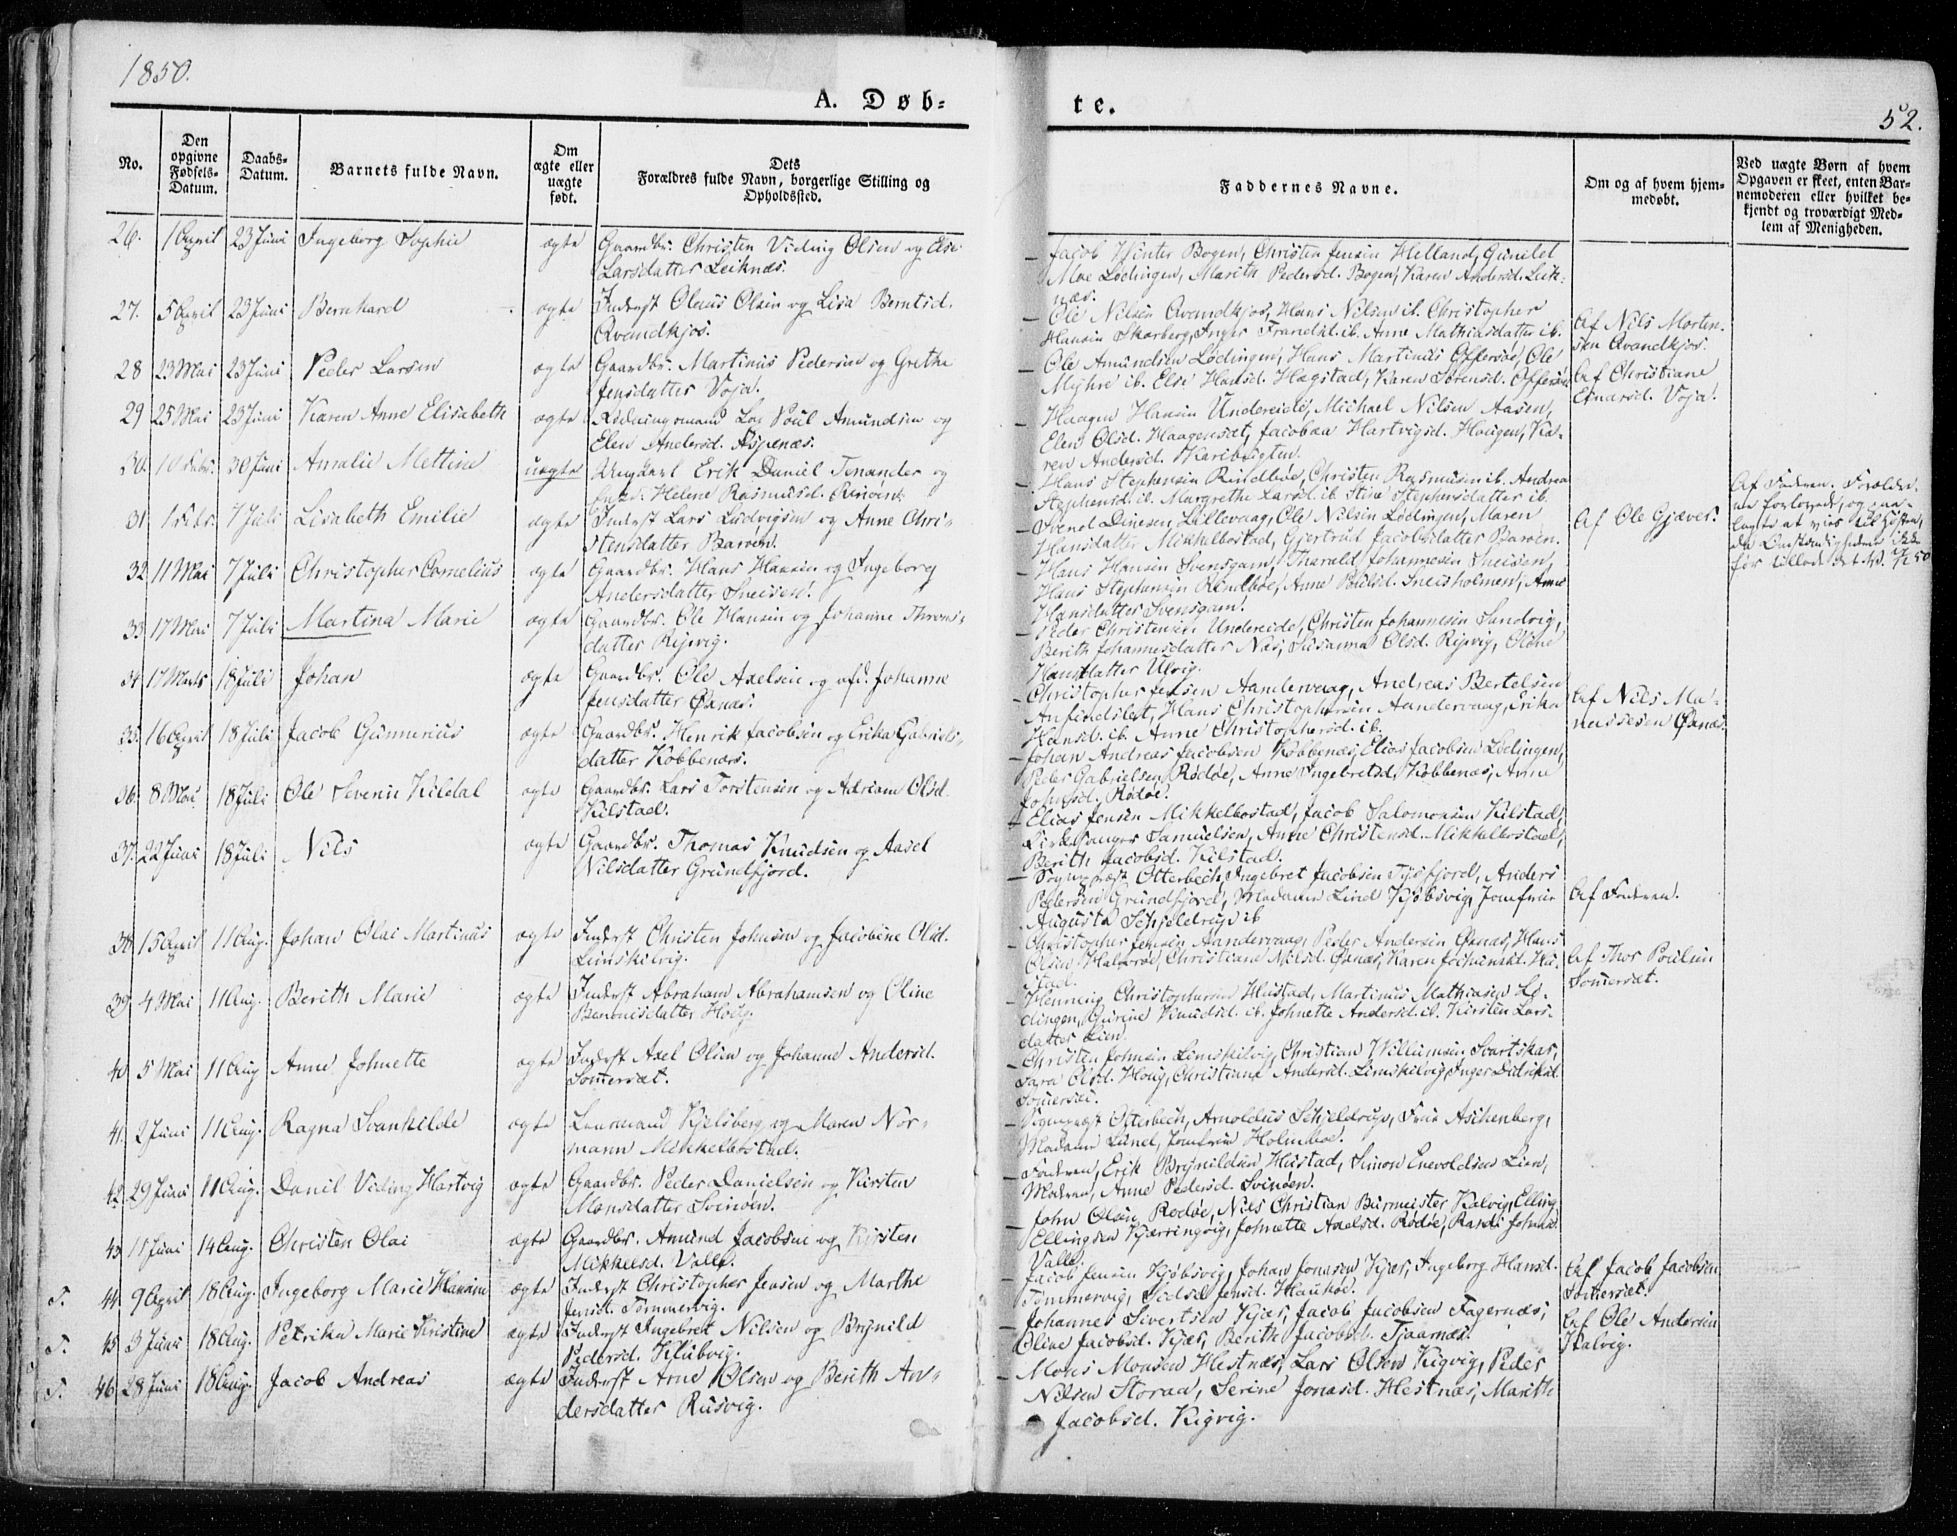 1850.
A. Døb-
te.
52.
No.
Den opgivne Fødsels-Datum.
Daabs-Datum.
Barnets fulde Navn.
Om ægte eller uægte født.
Dets Forældres fulde Navn, borgerlige Stilling og Opholdssted.
Faddernes Navne.
Om og af hvem hjemmedøbt.
Ved uægte Børn af hvem Opgaven er skeet, enten Barnemoderen eller hvilket bekjendt og troværdigt Medlem af Menigheden.
26. 1 April 23 Juni Ingeborg Sophie ægte Gaardbr. Christen Viding Olsen og Else
Larsdatter Leiknæs.
Jacob Winter Bogen, Christen Jensen Helland, Gunild
Moe Lødingen, Marith Pedersd. Bogen, Karen Andersd. Leik-
næs.
27. 5 April 23 Juni Bernhard ægte Inderst Olaus Olsen og Lisa Berntsd.
Qvandkjos.
Ole Nilsen Qvandkjos, Hans Nilsen ib. Christopher
Hansen Skarberg, Inger Frandsd. ib. Anne Mathiasdatter ib.
Af Nils Morten-
sen Qvandkjos.
28 23 Mai 23 Juni Peder Larsen ægte Gaardbr. Martinus Pedersen og Grethe
Jensdatter Voja.
Ole Amundsen Lødingen, Hans Martinus Offersøe, Ole
Mijhre ib. Else Hansd. Hægstad, Karen Sørensd. Offersøe
Af Christiane
Einarsd. Voja.
29 25 Mai 23 Juni Karen Anne Elisabeth ægte Poul Amundsen og
Elen Andersd. Aspenæs.
Haagen Hansen Undereide, Michael Nilsen Aasen,
Elen Olsd. Haagensæt, Jacobaa Hartvigsd. Haugen, Ka-
ren Andersd. Karibugten.
30. 30 Juni Amalie Mettine uægte Ungkarl Erik Daniel Tenander og
Helene Rasmusd. Rinøen.
Hans Stephensen Rindbøe, Christen Rasmusen ib. Andrea
Stephensd. ib. Margrethe Larsd. ib Stine Stephensdatter ib.
Af Faderen. Forældre-
ne forlovede, og
at vies til Høsten,
da Omstændighederne ikke
før tillod det.
31. 1 Febr. 7 Juli Lisabeth Emilie ægte Inderst Lars Ludvigsen og Anne Chri-
stensdatter Barøen.
Svend Dinesen Lillevaag, Ole Nilsen Lødingen, Maren
Hansdatter Mikkelbostad, Gjertrud Jacobsdatter Barøen.
Af Ole Gjæver.
32 11 Mai 7 Juli Christopher Cornelius ægte Gaardbr. Hans Hansen og Ingeborg
Andersdatter Sneisen.
Hans Hansen Svensgam, Tharald Johannesen Sneisen,
Hans Stephensen Rindbøe, Anne Poulsd. Sneisholmen, Anne
Hansdatter Svensgam.
33 17 Mai 7 Juli Martina Marie ægte Gaardbr. Ole Hansen og Johanne Thoms-
datter Rijvig.
Peder Christensen Undereide, Christen Johannesen Sandvig,
Berith Johannesdatter Næs, Susanna Olsd. Rijvig, Oline
Hansdatter Ulvig.
34 17 Marts 18 Juli Johan ægte Gaardbr. Ole Axelsen og afd. Johanne
Jensdatter Øxnæs.
Christopher Jensen Aandervaag, Andreas Bertelsen
Anfindslet, Hans Christophersen Aandervaag, Erika
Hansd. ib. Anne Christophersd. ib.
Af Nils Ma-
nassesen Øxnæs.
35. 16 April 18 Juli Jacob Gunnerius ægte Gaardbr. Henrik Jacobsen og Erika Gabriels-
datter Kobbenæs.
Johan Andreas Jacobsen Kobbenæs, Elias Jacobsen Lødingen,
Peder Gabrielsen Rødøe, Anne Ingebretsd. Kobbenæs, Anne
Johnsd. Rødøe.
36. 8 Mai 18 Juli Ole Severin Kildal ægte Gaardbr. Lars Torstensen og Adriane Olsd.
Kilstad.
Elias Jensen Mikkelbostad, Jacob Salomonsen Kilstad,
Kirkesanger Samuelsen, Anne Christensd. Mikkelbostad,
Berith Jacobsd. Kilstad.
37. 22 Juni 18 Juli Nils ægte Gaardbr. Thomas Knudsen og Aasel
Nilsdatter Grundfjord.
Sognepræst Otterbech, Ingebret Jacobsen Tysfjord, Anders
Pedersen Grundfjord, Madame Lind Kjøbsvig, Jomfrue
Augusta Schjeldrup ib
Af Faderen.
38. 15 April 11 Aug. Johan Olai Martinus ægte Inderst Christen Johnsen og Jacobine Olsd.
Limskilvig.
Christopher Jensen Aandervaag, Peder Andersen Øxnæs, Hans
Olsen Halvarøe, Christiane Nilsd. Øxnæs, Karen Jochumsd. Hu-
stad.
Af Thor Poulsen
Somersæt.
39 4 Mai 11 Aug. Berith Marie ægte Inderst Abraham Abrahamsen og Oline
Benonisdatter Houg.
Henning Christophersen Hustad, Martinus Mathiasen Lø-
dingen, Gurine Knudsd. ib. Johnette Andersd. ib. Kirsten Lars-
datter Lien.
40 5 Mai 11 Aug Anne Johnette ægte Inderst Axel Olsen og Johanne Andersd.
Somersæt.
Christen Johnsen Limskilvig, Christian Willumsen Svartskar,
Sara Olsd. Houg, Christiane Andersd. Limskilvig, Inger Didriksd.
Somersæt.
41. 2 Juni 11 Aug. Ragna Svanhilde ægte Lensmand Kjelsberg og Maren Nor-
mann Mikkelbostad.
Sognepræst Otterbech, Arnoldus Schjeldrup, Frue Aschenberg,
Madame Lund, Jomfrue Holmboe.
42. 29 Juni 11 Aug. Danil Viding Hartvig ægte Gaardbr. Peder Danielsen og Kirsten
Monsdatter Svinøen.
Faderen, Erik Brynildsen Hustad, Simon Enevoldsen Lien,
Moderen, Anne Pedersd. Svinøen.
43 11 Juni 14 Aug. Christen Olai ægte Gaardbr. Amund Jacobsen og Kirsten
Mikkelsd. Valle.
John Olsen Rødøe, Nils Christian Burmeister Kalvig, Elling
Ellingsen Kjærringvig, Johnette Axelsd. Rødøe, Randi Johnsd.
Valle.
T. 44. 9 April 18 Aug. Ingeborg Marie Hansine ægte Inderst Christopher Jensen og Marthe
Jensd. Tømmervig.
Jacob Jensen Kjøbsvig, Johan Jonasen Kjær, Ingeborg Hansd.
Tømmervig, Sidsel Jensd. Haukøe.
Af Jacob Jacobsen
Somersæt.
T. 45 3 Juni 18 Aug. Petrika Marie Kristine ægte Inderst Ingebret Nilsen og Brynild
Pedersd. Klubvig.
Johannes Sivertsen Kjær, Jacob Jacobsen Fagernæs,
Oline Jacobsd. Kjær, Berith Jacobsd. Tjaarnæs.
Af Ole Andersen
Kalvig.
T. 46 28 Juni 18 Aug. Jacob Andreas ægte Inderst Arne Olsen og Berith An-
dersdatter Rusvig.
Mons Monsen Hestnæs, Lars Olsen Kigvig, Peder
Nilsen Storaa, Serine Jonasd. Hestnæs, Marith
Jacobsd. Kigvig.